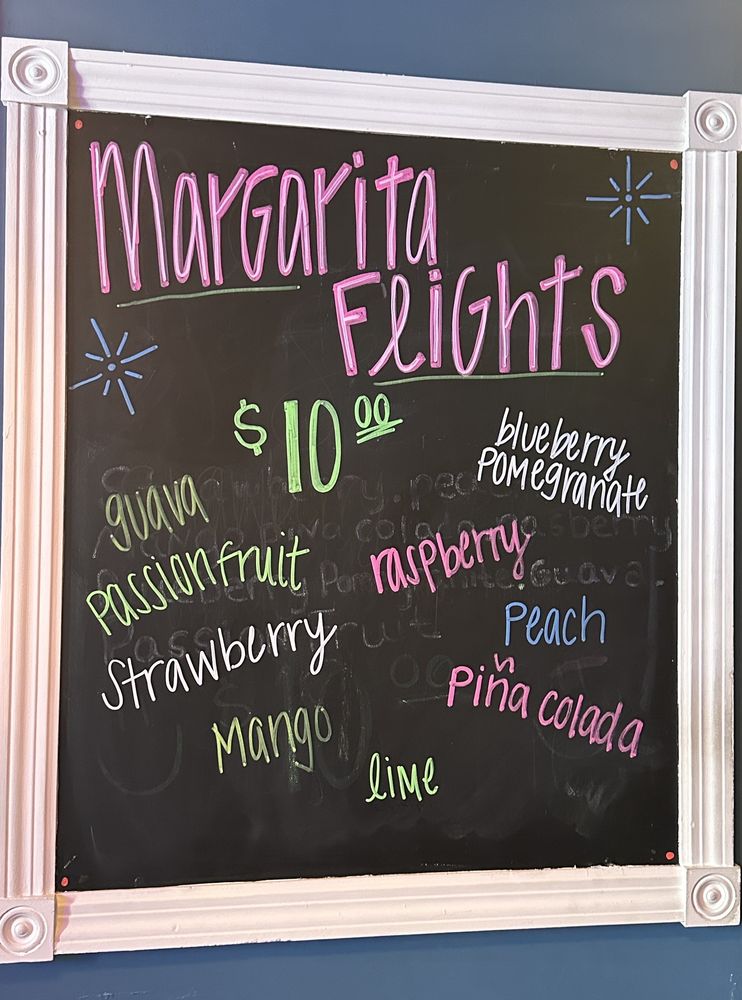 Margarita
Flights
$10 00
blueberry
Pomegranate
guava
passionfruit
raspberry
Strawberry
Peach
Mango
Piña colada
lime